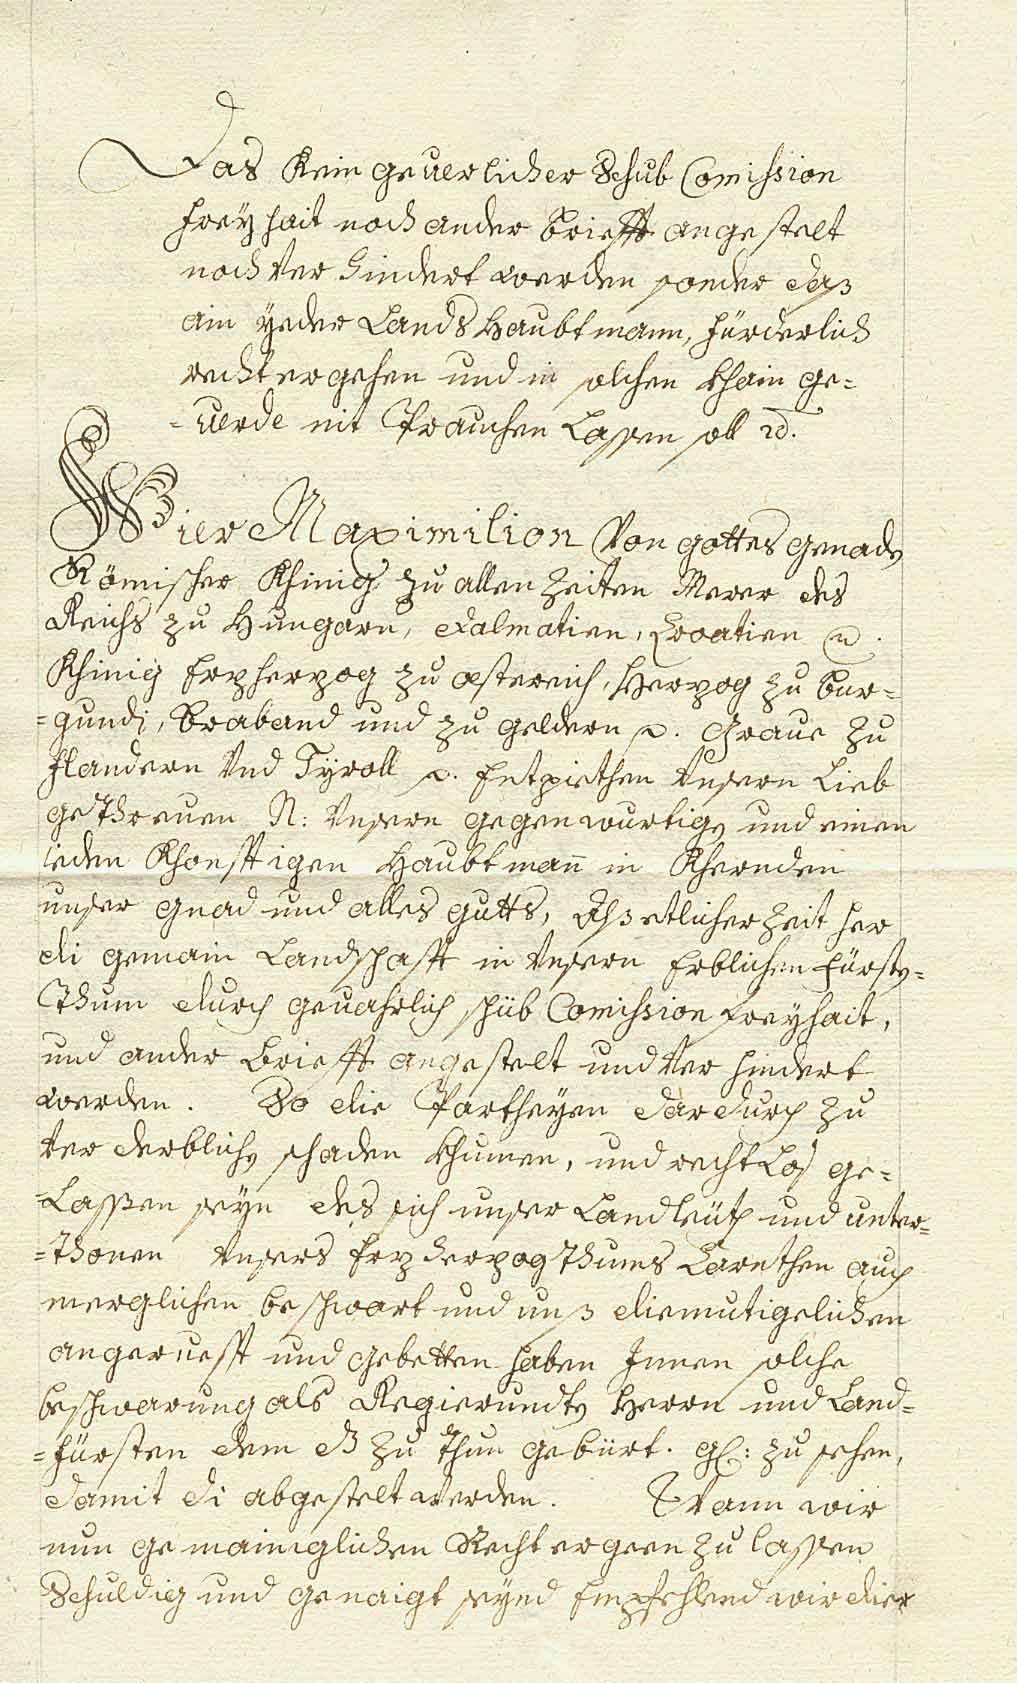 Das Kein geuerlicher Schub Comission
freyhait noch ander brieff angestelt
noch ver hindert werden sonder daß
ain yeder Lands Haubtmann, fürderlich
recht ergehen und in solchen khain ge=
=uerde nit Prauchen Lassen soll
Wier Maximilion Von gottes genad
Römischer Khinig zu allen Zeiten Merer des
Reichs zu Hungarn, dalmatien, Croatien
Khinig Erzherzog zu össtereich, Herzog zu bur=
=gundj, braband und zu geldern graue zu
flandern Vnd Tyroll Entpiethen Vnsern Lieb
gethreuen N: Vnsern gegenwurtig und einen
ieden Khonfftigen Haubtman̄ in Khernden
unser gnad und alles gutts, Alß etlicher Zeit her
di gemain Landschafft in Vnsern Erblichen fürst=
Thum durch geuahrlich schüb Comission freyhait,
und ander brieff angestelt und Ver hindert
werden. So die Partheyen dardurch zu
Ver derblich schaden khumen, und recht Loß ge=
=Lassen seyn des sich unser Landleüth und unter=
=thonen Vnsers Erzherzogthums Carnthen auch
merglichen beschwart und unß diemutigelichen
angerüefft und gebetten haben Innen solche
beschwarung als Regierundt Herrn und Land=
=fürsten dem eß zu thun gebürt. zu sehen,
damit di abgestelt werden. Wann wir
nun gemainglichen Recht ergeen zu lassen
Schuldig und genaigt seynd Empfehlend wir dier